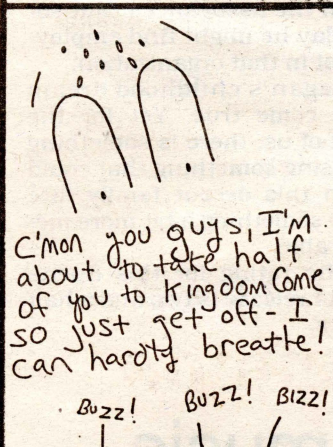 C'mon you guys, I'm
about to take half
of you to Kingdom Come
so just get off - I
can hardly breathe!
Buzz! Buzz! Bizz!